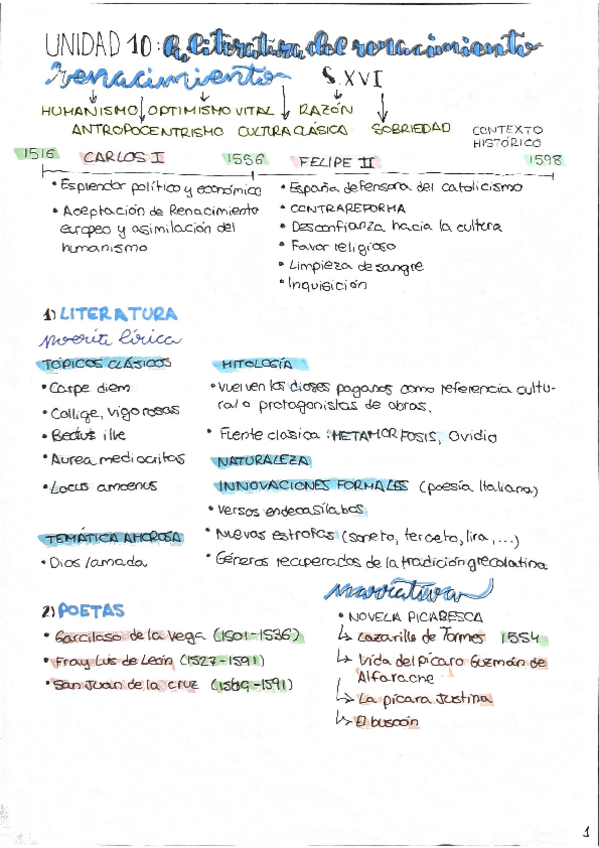 UNIDAD 10: La literatura del renacimiento
renacimiento S.XVI
HUMANISMO OPTIMISMO VITAL RAZÓN
ANTROPOCENTRISMO CULTURA CLÁSICA SOBRIEDAD
CONTEXTO
HISTÓRICO
1516 CARLOS I 1556 FELIPE II 1598
• Esplendor político y económico
• Aceptación de Renacimiento
europeo y asimilación del
humanismo
• España defensora del catolicismo
• CONTRAREFORMA
• Desconfianza hacia la cultura
• Favor religioso
• Limpieza de sangre
• Inquisición
1) LITERATURA
lírica
TÓPICOS CLÁSICOS
• Carpe diem
• Collige, vigo rosas
• Beatus ille
• Aurea mediocritas
• Locus amoenus
TEMÁTICA AMOROSA
• Dios/amada
MITOLOGÍA
• Vuelven los dioses paganos como referencia cultu-
ral o protagonistas de obras.
• Fuente clásica: METAMORFOSIS, Ovidio
NATURALEZA
INNOVACIONES FORMALES (poesía Italiana)
• Versos endecasílabos
• Nuevas estrofas (soneto, terceto, lira, ...)
• Géneros recuperados de la tradición grecolatina
2) POETAS
• Garcilaso de la Vega (1501-1536)
• Fray Luis de León (1527-1591)
• San Juan de la Cruz (1569-1591)
Narrativa
• NOVELA PICARESCA
↳ Lazarillo de Tormes 1554
↳ Vida del pícaro Guzmán de
Alfarache
↳ La pícara Justina
↳ El buscón
1